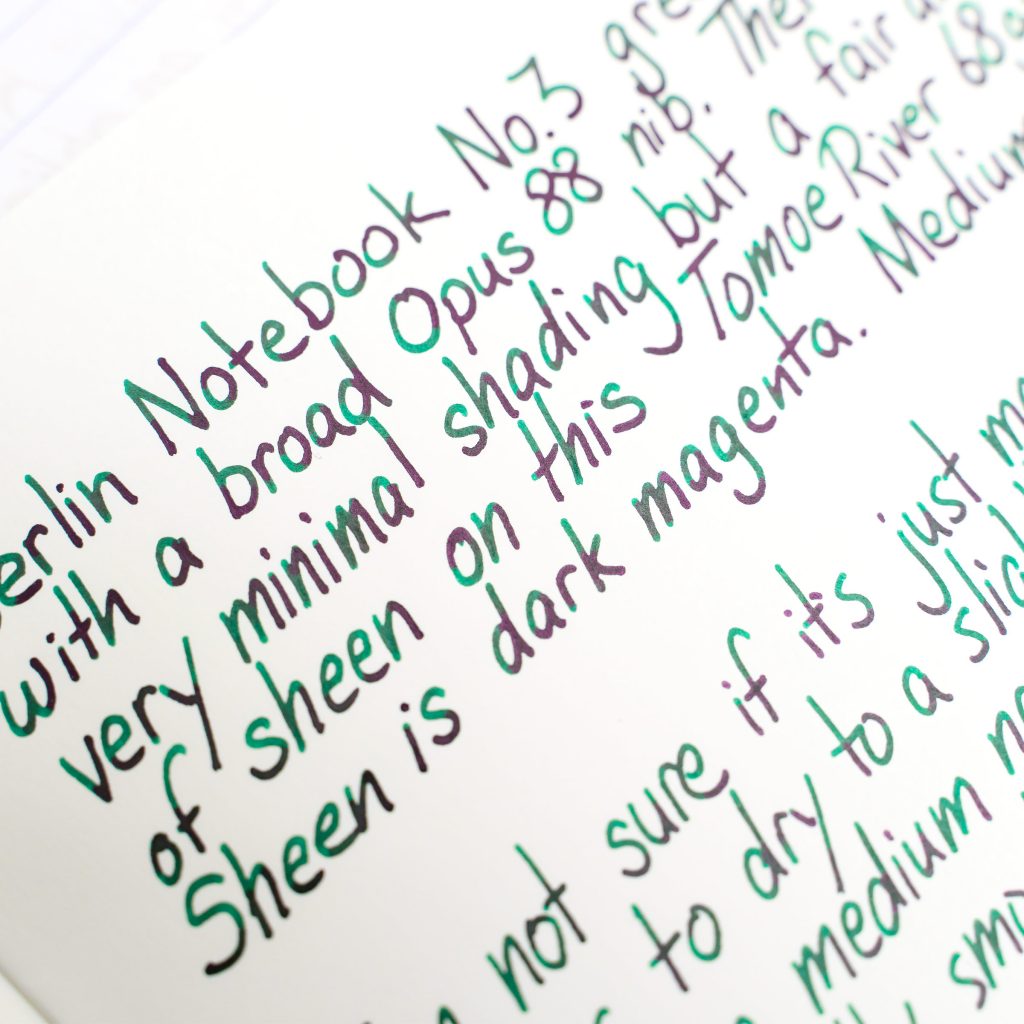 Notebook No.3
with a broad Opus 88 nib.
very minimal shading but a fair
of sheen on this Tomoe River 68
Sheen is dark magenta. Medium
not sure if it's just
to dry to a
medium